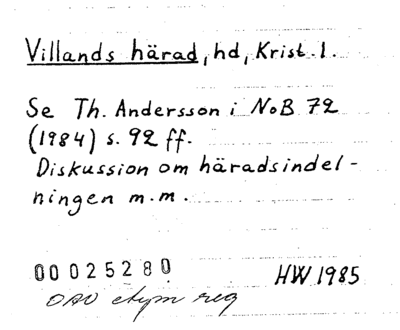 Villands härad, hd, Krist. l.
Se Th. Andersson i NoB 72
(1984) s. 92 ff.
Diskussion om häradsindel-
ningen m.m.
00025280
HW 1985
OAU etym reg